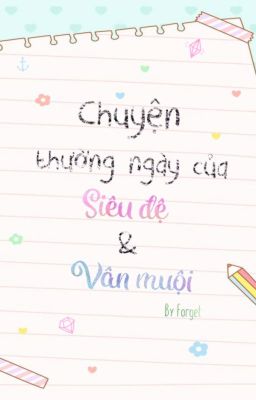 Chuyện
thường ngày của
Siêu đệ
&
Vân muội
By Forget